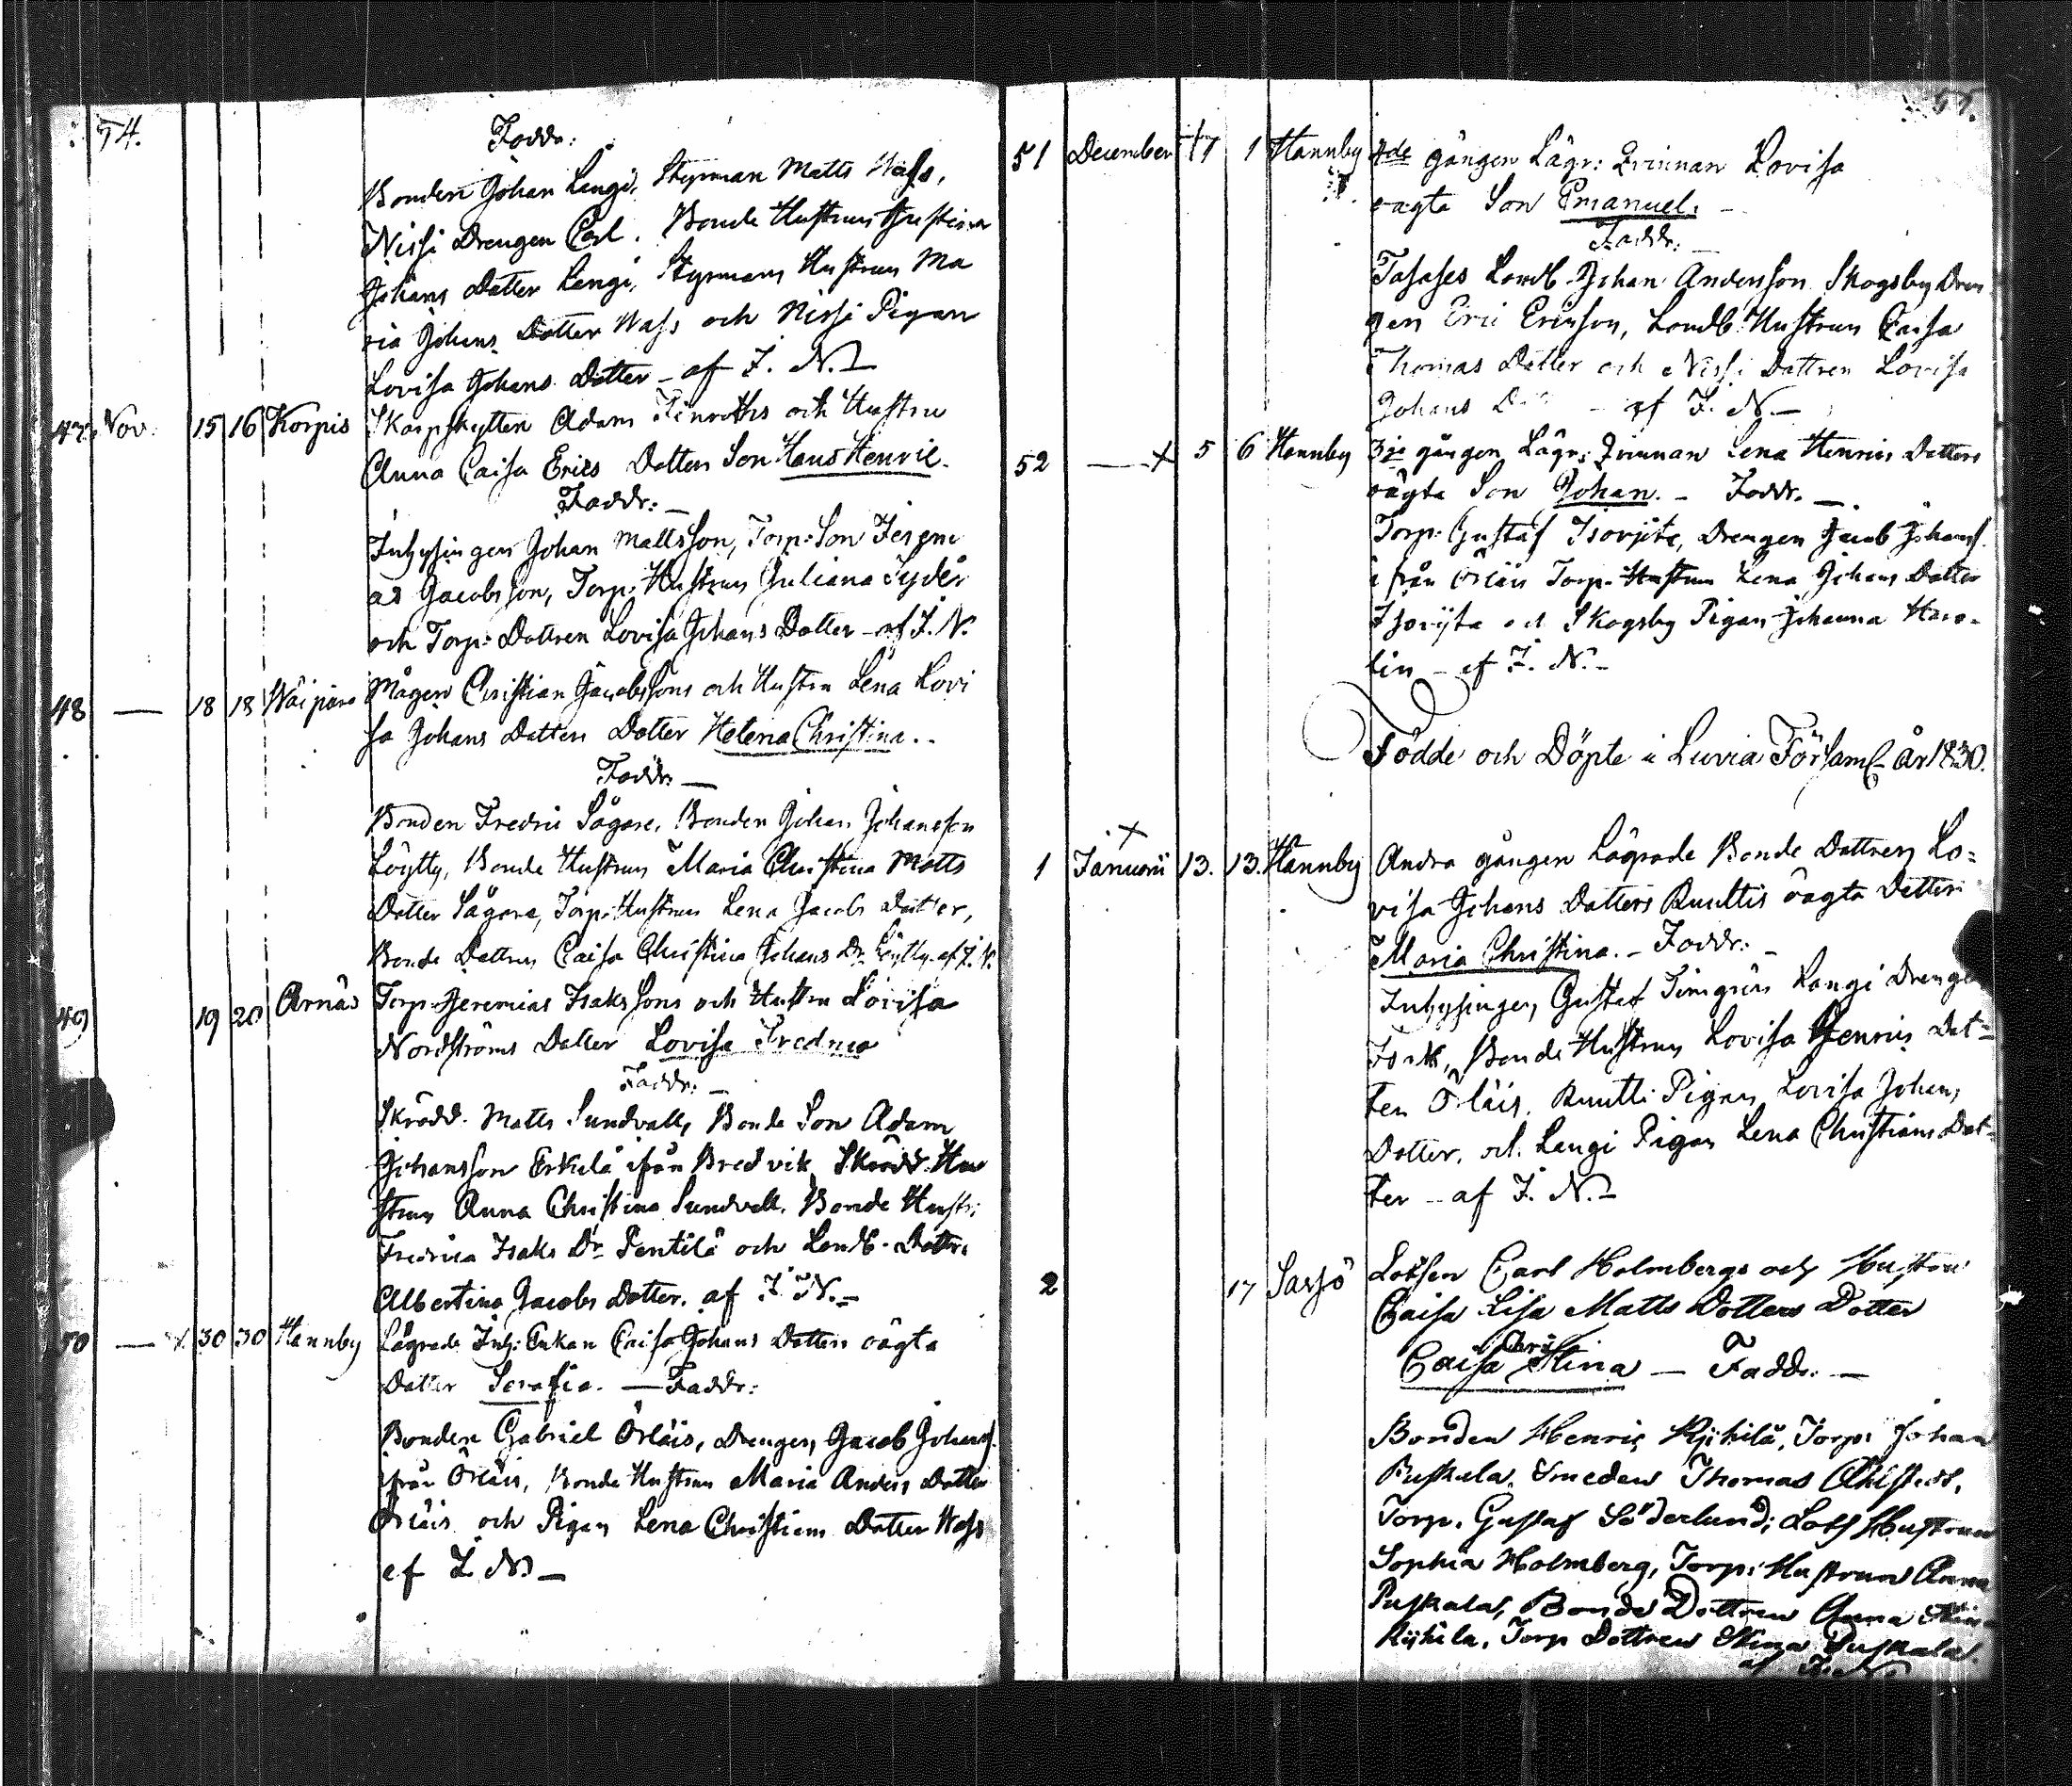 54.
Faddr:
Bonden Johan Langi, Styrman Matts Wass,
Nissi Drengen Carl. Bonde Hustrun Justina
Johans Dotter Langi, Styrmans Hustrun Ma
ria Johans Dotter Wass och Nissi Pigan
Lovisa Johans Dotter – af I. N. –
47. Nov. 15 16 Korpis Skarpskytten Adam och Hustru
Anna Caisa Erics Dotters Son Hans Henric.
Faddr: –
Inhysingen Johan Mattsson, Torp: Son Jeremi
as Jacobsson, Torp. Hustrun Juliana
och Torp: Dottren Lovisa Johans Dotter – af I. N.
48 — 18 18 Mågen Christian Jacobssons och Hustru Lena Lovi
sa Johans Dotters Dotter Helena Christina. –
Faddr. —
Bonden Fredric Sågare, Bonden Johan Johansson
Löytty, Bonde Hustrun Maria Christina Matts
Dotter Sågare, Torp. Hustrun Lena Jacobs Dotter,
Bonde Dottren Caisa Christina Johans Dr. Löytty. af I. N.
49 19 20 Arnäs Torp. Jeremias Isakssons och Hustru Lovisa
Nordströms Dotter Lovisa Fredrica
Faddr: –
Skrädd. Matts Sundvall, Bonde Son Adam
Johansson Erkilä ifrån Bredvik, Skrädd. Hu
strun Anna Christina Sundvall, Bonde Hustr:
Fredrica Isaks Dr. Pentilä och Landb. Dottr:
Albertina Jacobs Dotter. af I. N. –
50 — x. 30 30 Hannby Lägrade Inh: Enkan Caisa Johans Dotters oägta
Dotter Serafia. — Faddr:
Bonden Gabriel Örläis, Drengen Jacob Johanss.
ifrån Örläis, Bonde Hustrun Maria Anders Dotter
Örläis och Pigan Lena Christians Dotter Wass
af I. N. –
55.
51 December 1 Hannby gången Lägr: Qvinnan Lovisa
oägta Son Emanuel. –
Faddr: –
Landb. Johan Andersson Skogsby Dren
gen Eric Ericsson, Landb. Hustrun Caisa
Thomas Dotter och Nissi Dottren Lovisa
Johans – af I. N –
52 — x 5 6 Hannby 3je gången Lägr: Qvinnan Lena Henrics Dotters
oägta Son Johan. – Faddr. –
Torp: Gustaf Drengen Jacob Johanss.
ifrån Örläis Torp. Hustrun Lena Johans Dotter
och Skogsby Pigan Johanna
– af I. N. –
Födde och Döpte i Luvia Församl. År 1830.
x
1 Januarii 13. 13. Hannby Andra gången Lägrade Bonde Dottren Lo=
visa Johans Dotters Ruuttis oägta Dotter
Maria Christina. – Faddr: –
Inhysingen Gustaf Langi Drengen
Isak, Bonde Hustrun Lovisa Henrics Dot=
ter Örläis, Ruutti Pigan Lovisa Johans
Dotter, och Langi Pigan Lena Christians Dot=
ter – af I. N. –
2 17 Sassö Lotsen Carl Holmbergs och Hustru
Caisa Lisa Matts Dotters Dotter
Chri
Caisa Stina — Fadd: —
Bonden Henric Kyhilä, Torp: Johan
Puskala, Smeden Thomas Ahlstedt,
Torp. Gustaf Söderlund; Lots Hustrun
Sophia Holmberg, Torp: Hustrun Anna
Puskala, Bonde Dottren Anna
Kyhilä, Torp Dottren Stina Puskala.
af I. N.